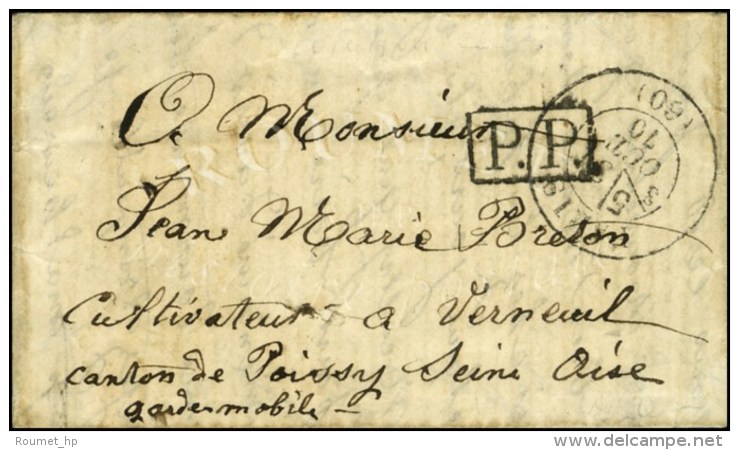 A Monsieur
P.P.
(60)
Jean Marie Breton
Cultivateur a Verneuil
canton de Poissy Seine Oise
garde mobile
Roumet_hp
delcampe.net